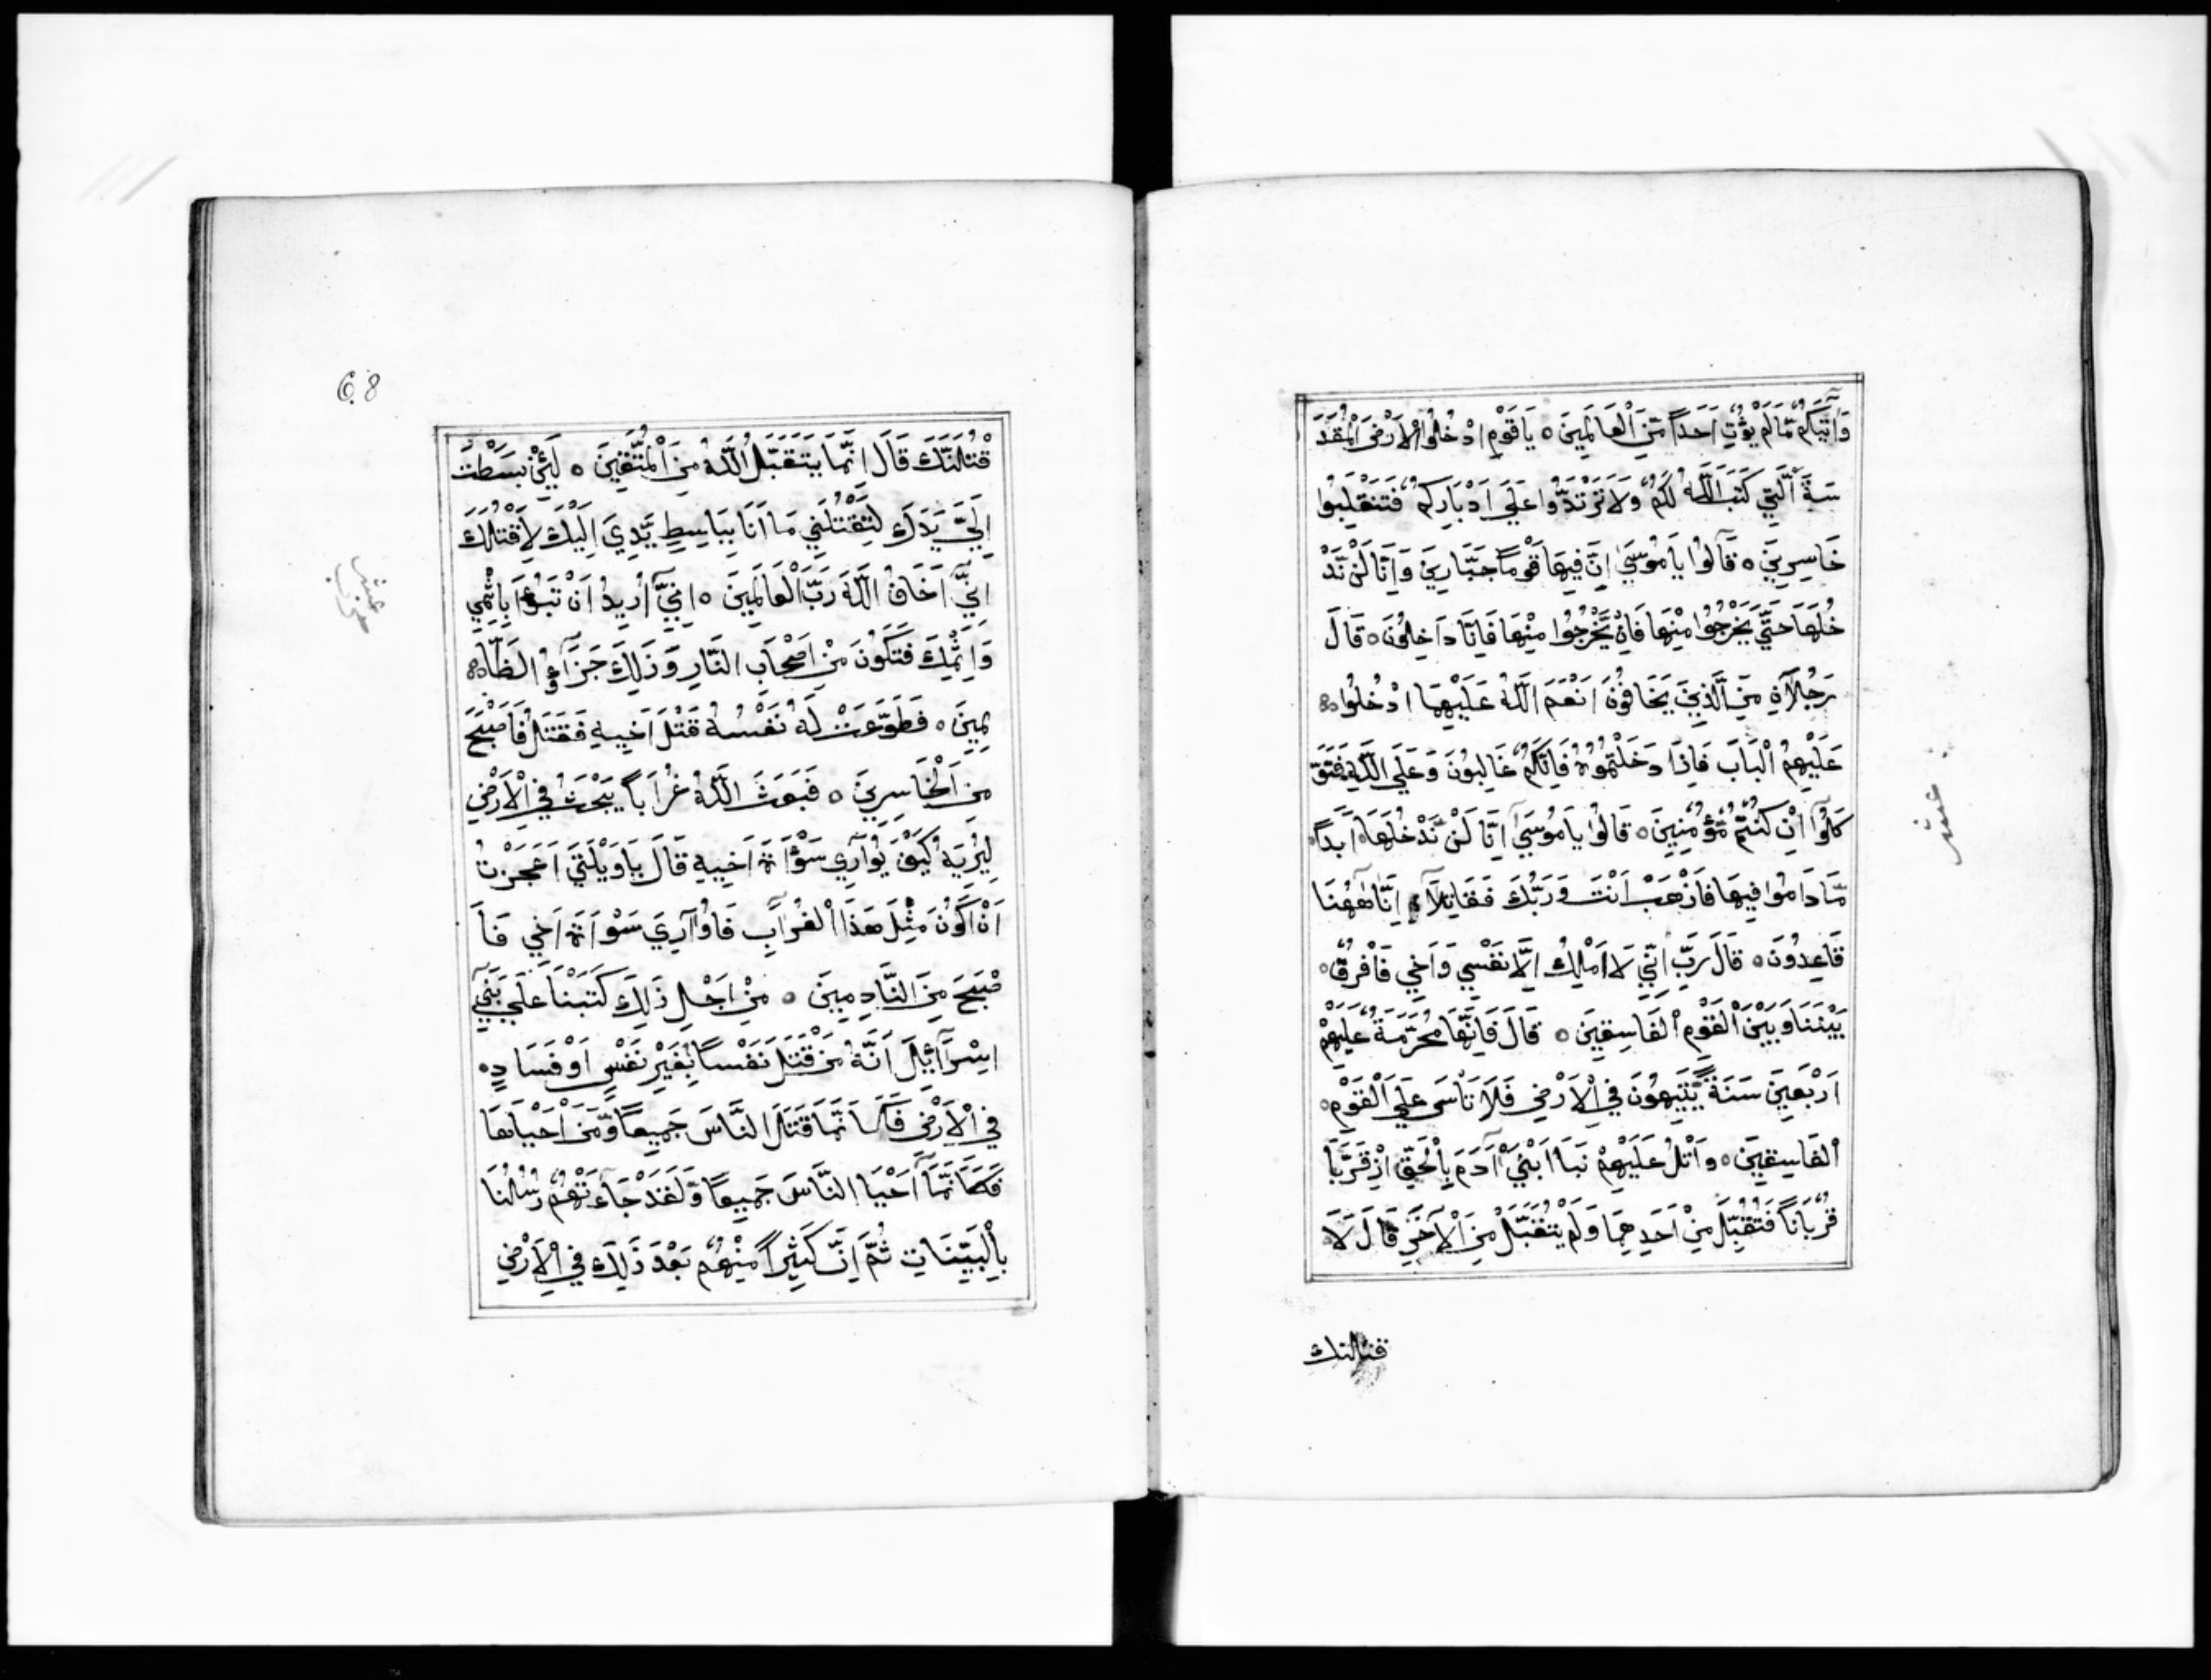 وَآتَيكُمْ مَّالَمْ يُؤْتِ اَحَداً مِّنَ الْعَالَمِينَ ه يَا قَوْمِ ادْخُلُوا الْاَرْضَ الْمُقَدَّ
سَةَ الَّتِي كَتَبَ اللَّهُ لَكُمْ وَلَا تَرْتَدُّوا عَلَى اَدْبَارِكُمْ فَتَنْقَلِبُوا
خَاسِرِينَ ه قَالُوا يَا مُوسَىٰ اِنَّ فِيهَا قَوْماً جَبَّارِينَ وَاِنَّا لَنْ نَّدْ
خُلَهَا حَتَّىٰ يَخْرُجُوا مِنْهَا فَاِنْ يَّخْرُجُوا مِنْهَا فَاِنَّا دَاخِلُونَ ه قَالَ
رَجُلَانِ مِنَ الَّذِينَ يَخَافُونَ اَنْعَمَ اللَّهُ عَلَيْهِمَا ادْخُلُوا
عَلَيْهِمُ الْبَابَ فَاِذَا دَخَلْتُمُوهُ فَاِنَّكُمْ غَالِبُونَ وَعَلَى اللَّهِ فَتَوَ
كَلُوا اِنْ كُنْتُمْ مُّؤْمِنِينَ ه قَالُوا يَا مُوسَىٰ اِنَّا لَنْ نَّدْخُلَهَا اَبَداً
مَّا دَامُوا فِيهَا فَاذْهَبْ اَنْتَ وَرَبُّكَ فَقَاتِلَا اِنَّا هٰهُنَا
قَاعِدُونَ ه قَالَ رَبِّ اِنِّي لَا اَمْلِكُ اِلَّا نَفْسِي وَاَخِي فَافْرُقْ
بَيْنَنَا وَبَيْنَ الْقَوْمِ الْفَاسِقِينَ ه قَالَ فَاِنَّهَا مُحَرَّمَةٌ عَلَيْهِمْ
اَرْبَعِينَ سَنَةً يَّتِيهُونَ فِي الْاَرْضِ فَلَا تَاْسَ عَلَى الْقَوْمِ
الْفَاسِقِينَ ه وَاتْلُ عَلَيْهِمْ نَبَاَ ابْنَيْ آدَمَ بِالْحَقِّ اِذْ قَرَّبَا
قُرْبَاناً فَتُقُبِّلَ مِنْ اَحَدِهِمَا وَلَمْ يُتَقَبَّلْ مِنَ الْآخَرِ قَالَ لَاَ
قتلنك
عشر
6.8
قْتُلَنَّكَ قَالَ اِنَّمَا يَتَقَبَّلُ اللَّهُ مِنَ الْمُتَّقِينَ ه لَئِنْ بَسَطْتَّ
اِلَيَّ يَدَكَ لِتَقْتُلَنِي مَا اَنَا بِبَاسِطٍ يَّدِيَ اِلَيْكَ لِاَقْتُلَكَ
اِنِّي اَخَافُ اللَّهَ رَبَّ الْعَالَمِينَ ه اِنِّي اُرِيدُ اَنْ تَبُوْءَ بِاِثْمِي
وَاِثْمِكَ فَتَكُونَ مِنْ اَصْحَابِ النَّارِ وَذٰلِكَ جَزَآؤُ الظَّا
لِمِينَ ه فَطَوَّعَتْ لَهُ نَفْسُهُ قَتْلَ اَخِيهِ فَقَتَلَهُ فَاَصْبَحَ
مِنَ الْخَاسِرِينَ ه فَبَعَثَ اللَّهُ غُرَاباً يَبْحَثُ فِي الْاَرْضِ
لِيُرِيَهُ كَيْفَ يُوَارِي سَوْاَةَ اَخِيهِ قَالَ يَا وَيْلَتَىٰ اَعَجَزْتُ
اَنْ اَكُونَ مِثْلَ هَذَا الْغُرَابِ فَاُوَارِيَ سَوْاَةَ اَخِي فَاَ
صْبَحَ مِنَ النَّادِمِينَ ه مِنْ اَجْلِ ذٰلِكَ كَتَبْنَا عَلَى بَنِي
اِسْرَآئِيلَ اَنَّهُ مَنْ قَتَلَ نَفْساً بِغَيْرِ نَفْسٍ اَوْ فَسَادٍ
فِي الْاَرْضِ فَكَاَنَّمَا قَتَلَ النَّاسَ جَمِيعاً وَّمَنْ اَحْيَاهَا
فَكَاَنَّمَا اَحْيَا النَّاسَ جَمِيعاً وَلَقَدْ جَاءَتْهُمْ رُسُلُنَا
بِالْبَيِّنَاتِ ثُمَّ اِنَّ كَثِيراً مِّنْهُمْ بَعْدَ ذٰلِكَ فِي الْاَرْضِ